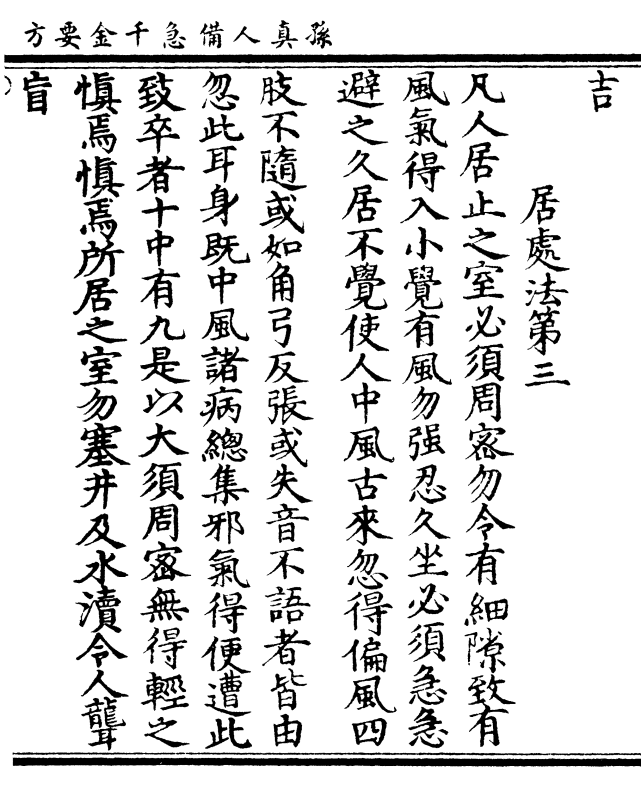 孫真人備急千金要方
吉
居處法第三
凡人居止之室必須周密勿令有細隙致有
風氣得入小覺有風勿强忍久坐必須急急
避之久居不覺使人中風古來忽得偏風四
肢不隨或如角弓反張或失音不語者皆由
忽此耳身既中風諸病總集邪氣得便遭此
致卒者十中有九是以大須周密無得輕之
慎焉慎焉所居之室勿塞井及水瀆令人聾
盲